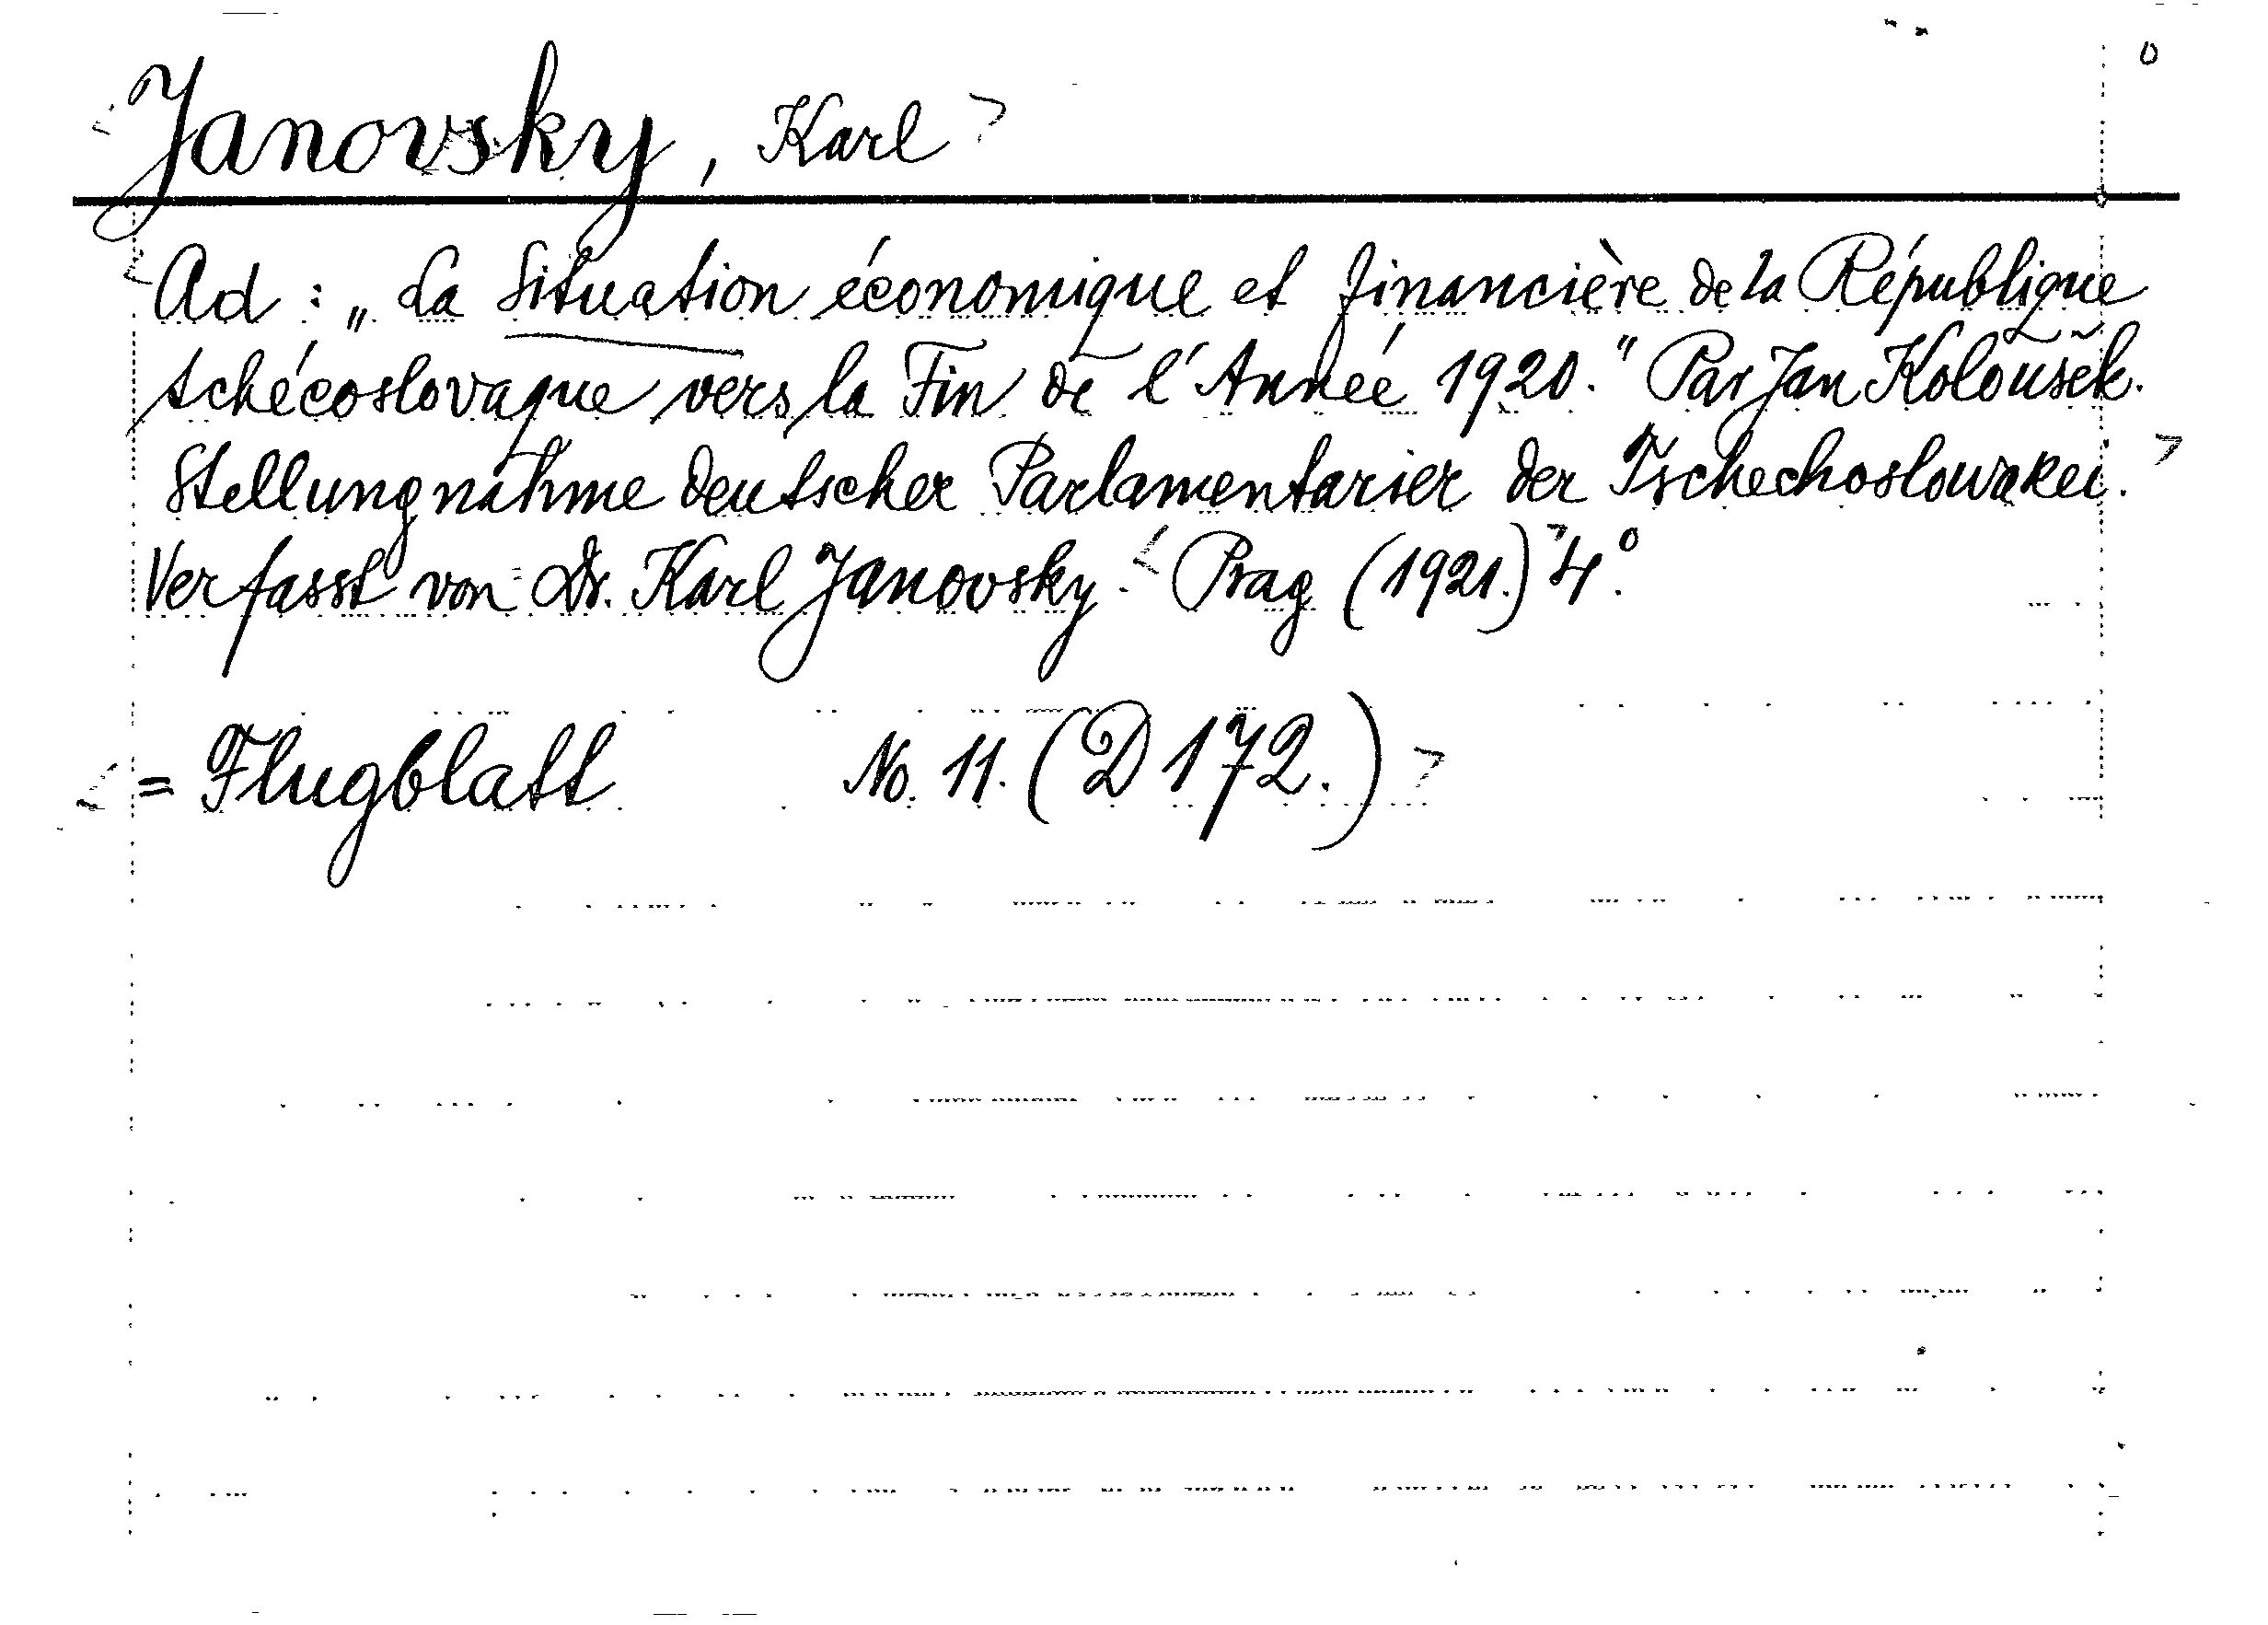 Janovsky, Karl
Ad: „La Situation économique et financière de la République
tchécoslovaque vers la Fin de l'Année 1920." Par Jan Koloušek.
Stellungnahme deutscher Parlamentarier der Tschechoslowakei.
Verfasst von Dr. Karl Janovsky. Prag (1921.) 4°.
= Flugblatt No. 11. (D 172.)